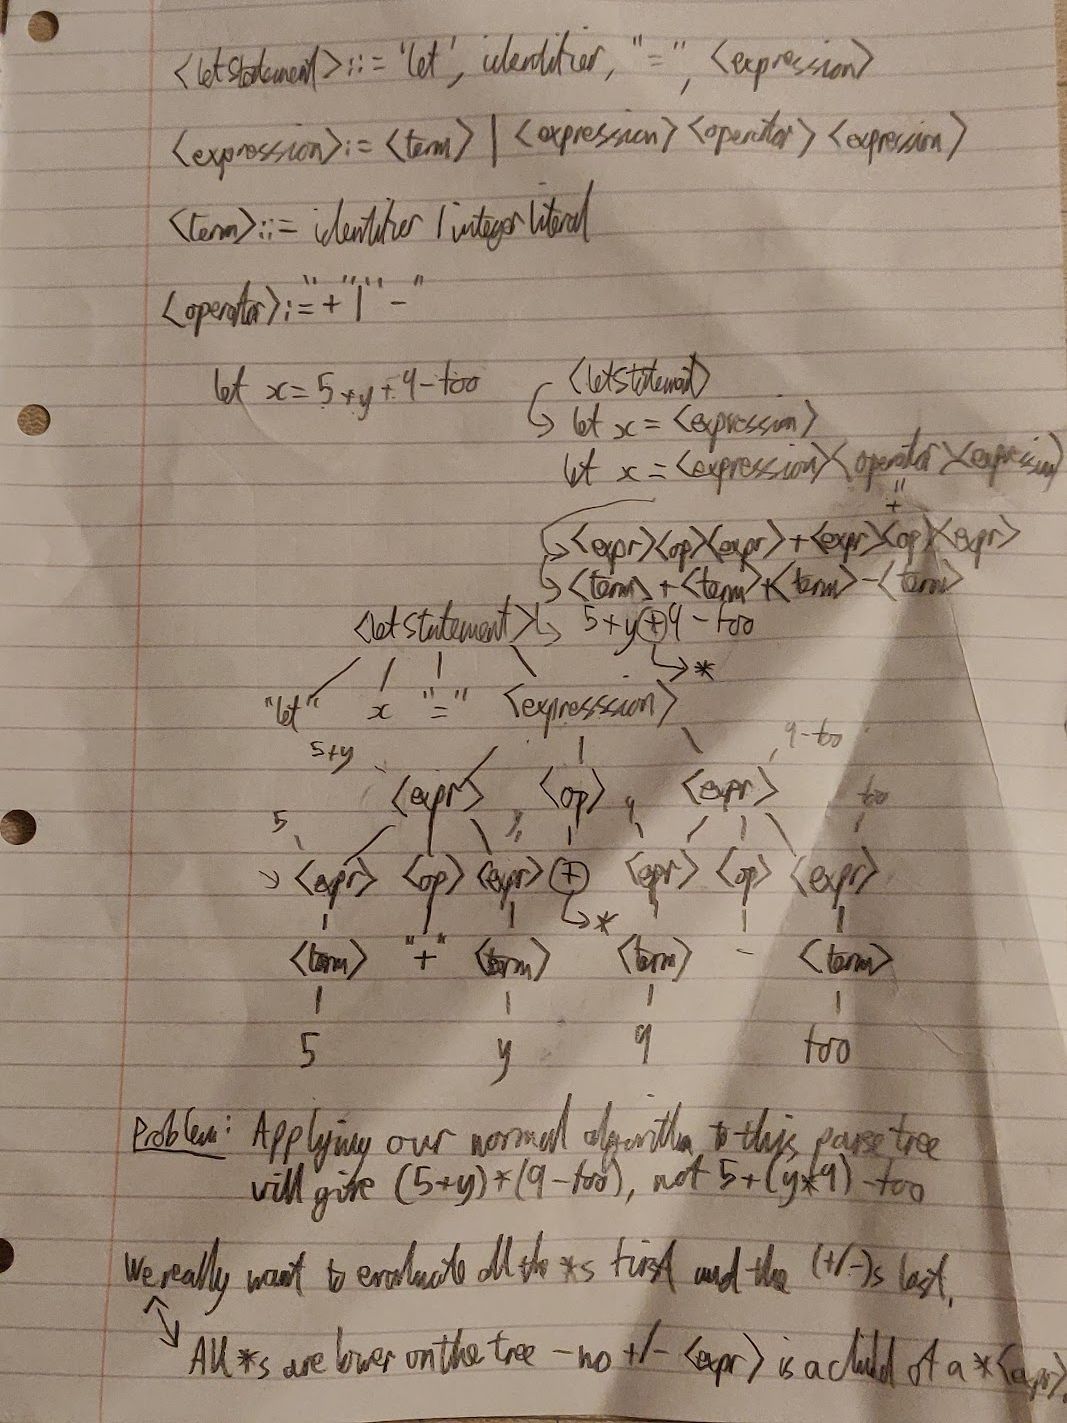 <letstatement>::= 'let', identifier, "=", <expression>
<expression>:= <term> | <expression> <operator> <expression>
<term>::= identifier | integer literal
<operator>:="+"|"-"
let x=5+y+9-foo
<letstatement>
let x = <expression>
let x = <expression><operator><expression>
"+
<expr><op><expr>+<expr><op><expr>
<term>+<term>+<term>-<term>
<letstatement> 5+y+9-foo
*
"let" x "=" <expresssion>
5+y 9-foo
<expr> <op> <expr>
5 y 9 foo
<expr> <op> <expr> + <expr> <op> <expr>
*
<term> "+" <term> <term> - <term>
5 y 9 foo
Problem: Applying our normal algorithm to this parse tree
will give (5+y)*(9-foo), not 5+(y*9)-foo
We really want to evaluate all the *s first and the (+/-)s last.
All *s are lower on the tree - no +/- <expr> is a child of a *<expr>.